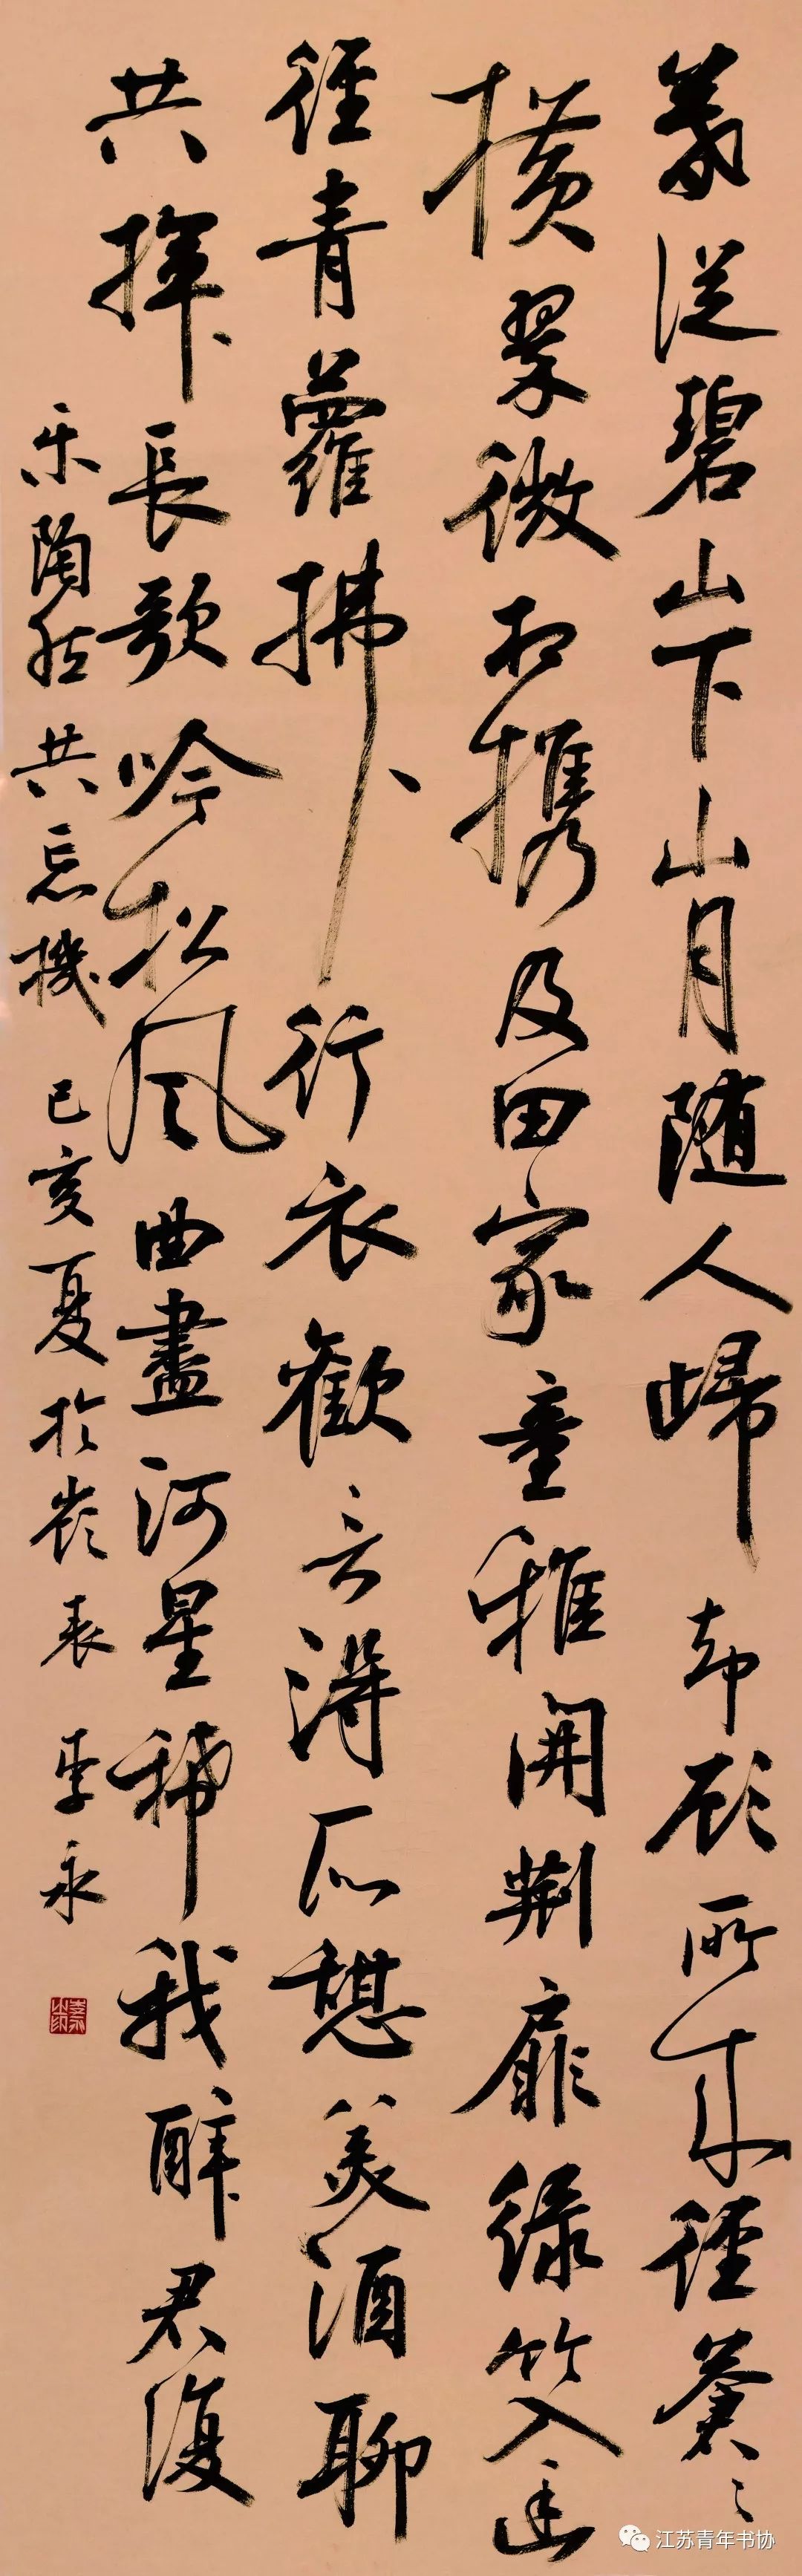 暮從碧山下山月随人歸却顧所來徑蒼〻
横翠微相携及田家童稚開荆扉綠竹入幽
徑青蘿拂行衣歡言得所憩美酒聊
共揮長歌吟松風曲盡河星稀我醉君復
乐陶然共忘機 己亥夏於嶺表 李永
李永之印
江苏青年书协